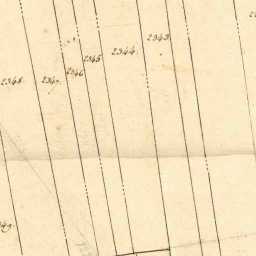 2348.
2347.
2346
2345
2344.
2343